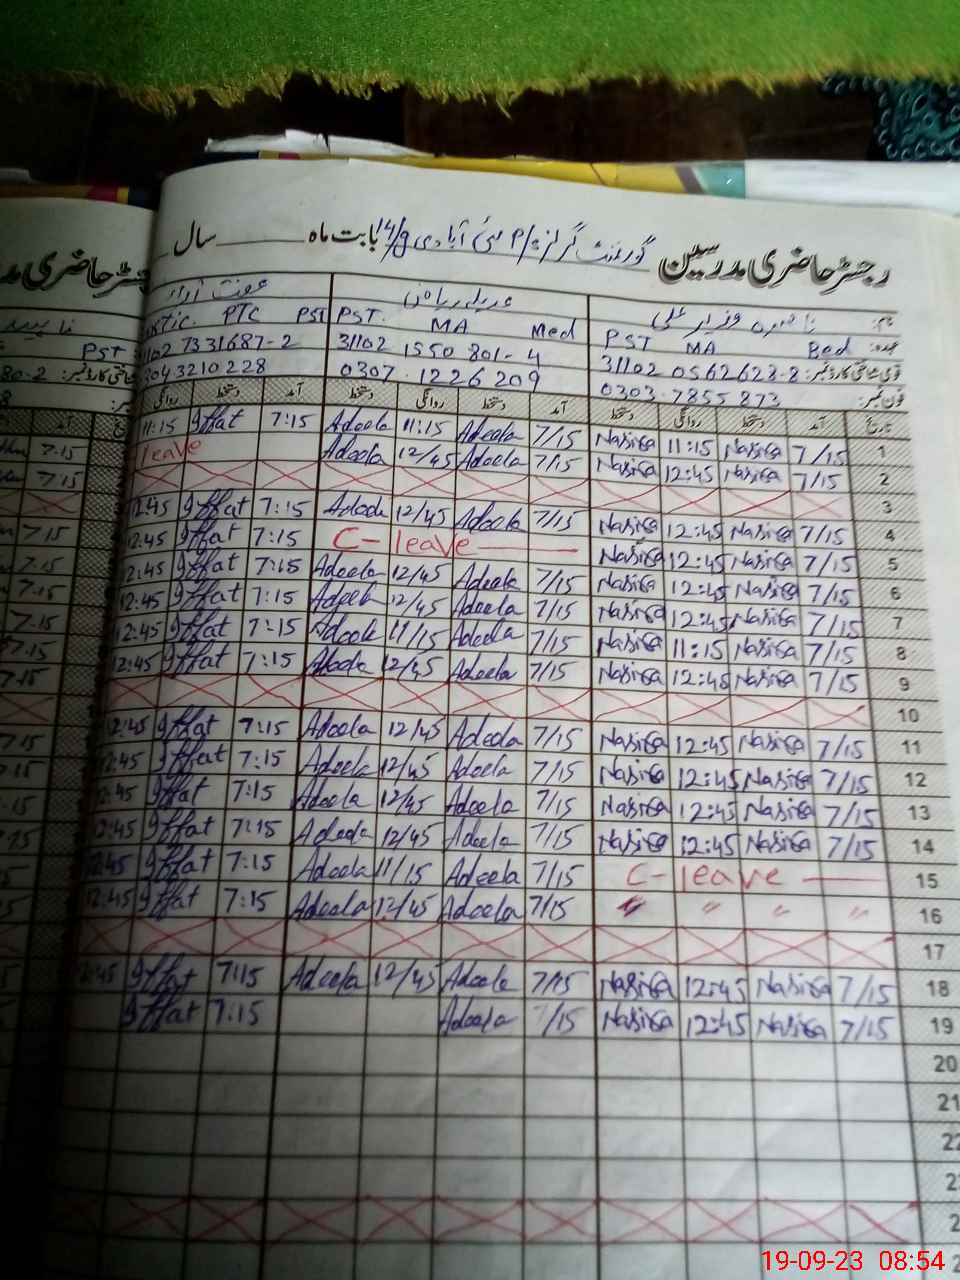 رجسٹر حاضری مدرسین گورنمنٹ گرلز P/S نئی آبادی 14/g بابت ماہ ______ سال
نام: ناصرہ وزیر علی
عدیلہ ریاض
عفت آراء
عہدہ: PST MA Bed
PST. MA Med
PTC PST
قومی شناختی کارڈ نمبر: 31102 0562628-8
31102 1550 801-4
1102 7331687-2
فون نمبر: 0303-7855 873
0307. 1226 209
3043210228
تاریخ آمد دستخط روانگی دستخط آمد دستخط روانگی دستخط آمد دستخط روانگی
11:15 Iffat 7:15 Adeela 11:15 Adeela 7/15 Nasira 11:15 Nasira 7/15 1
leave Adeela 12/45 Adeela 7/15 Nasira 12:45 Nasira 7/15 2
3
12:45 Iffat 7:15 Adeela 12/45 Adeela 7/15 Nasira 12:45 Nasira 7/15 4
12:45 Iffat 7:15 C- leave Nasira 12:45 Nasira 7/15 5
12:45 Iffat 7:15 Adeela 12/45 Adeela 7/15 Nasira 12:45 Nasira 7/15 6
12:45 Iffat 7:15 Adeela 12/45 Adeela 7/15 Nasira 12:45 Nasira 7/15 7
12:45 Iffat 7:15 Adeela 11/15 Adeela 7/15 Nasira 11:15 Nasira 7/15 8
12:45 Iffat 7:15 Adeela 12/45 Adeela 7/15 Nasira 12:45 Nasira 7/15 9
10
12:45 Iffat 7:15 Adeela 12/45 Adeela 7/15 Nasira 12:45 Nasira 7/15 11
12:45 Iffat 7:15 Adeela 12/45 Adeela 7/15 Nasira 12:45 Nasira 7/15 12
12:45 Iffat 7:15 Adeela 12/45 Adeela 7/15 Nasira 12:45 Nasira 7/15 13
12:45 Iffat 7:15 Adeela 12/45 Adeela 7/15 Nasira 12:45 Nasira 7/15 14
12:45 Iffat 7:15 Adeela 11/15 Adeela 7/15 C- leave 15
12:45 Iffat 7:15 Adeela 12/45 Adeela 7/15 " " " " 16
17
12:45 Iffat 7:15 Adeela 12/45 Adeela 7/15 Nasira 12:45 Nasira 7/15 18
Iffat 7:15 Adeela 7/15 Nasira 12:45 Nasira 7/15 19
20
21
22
19-09-23 08:54